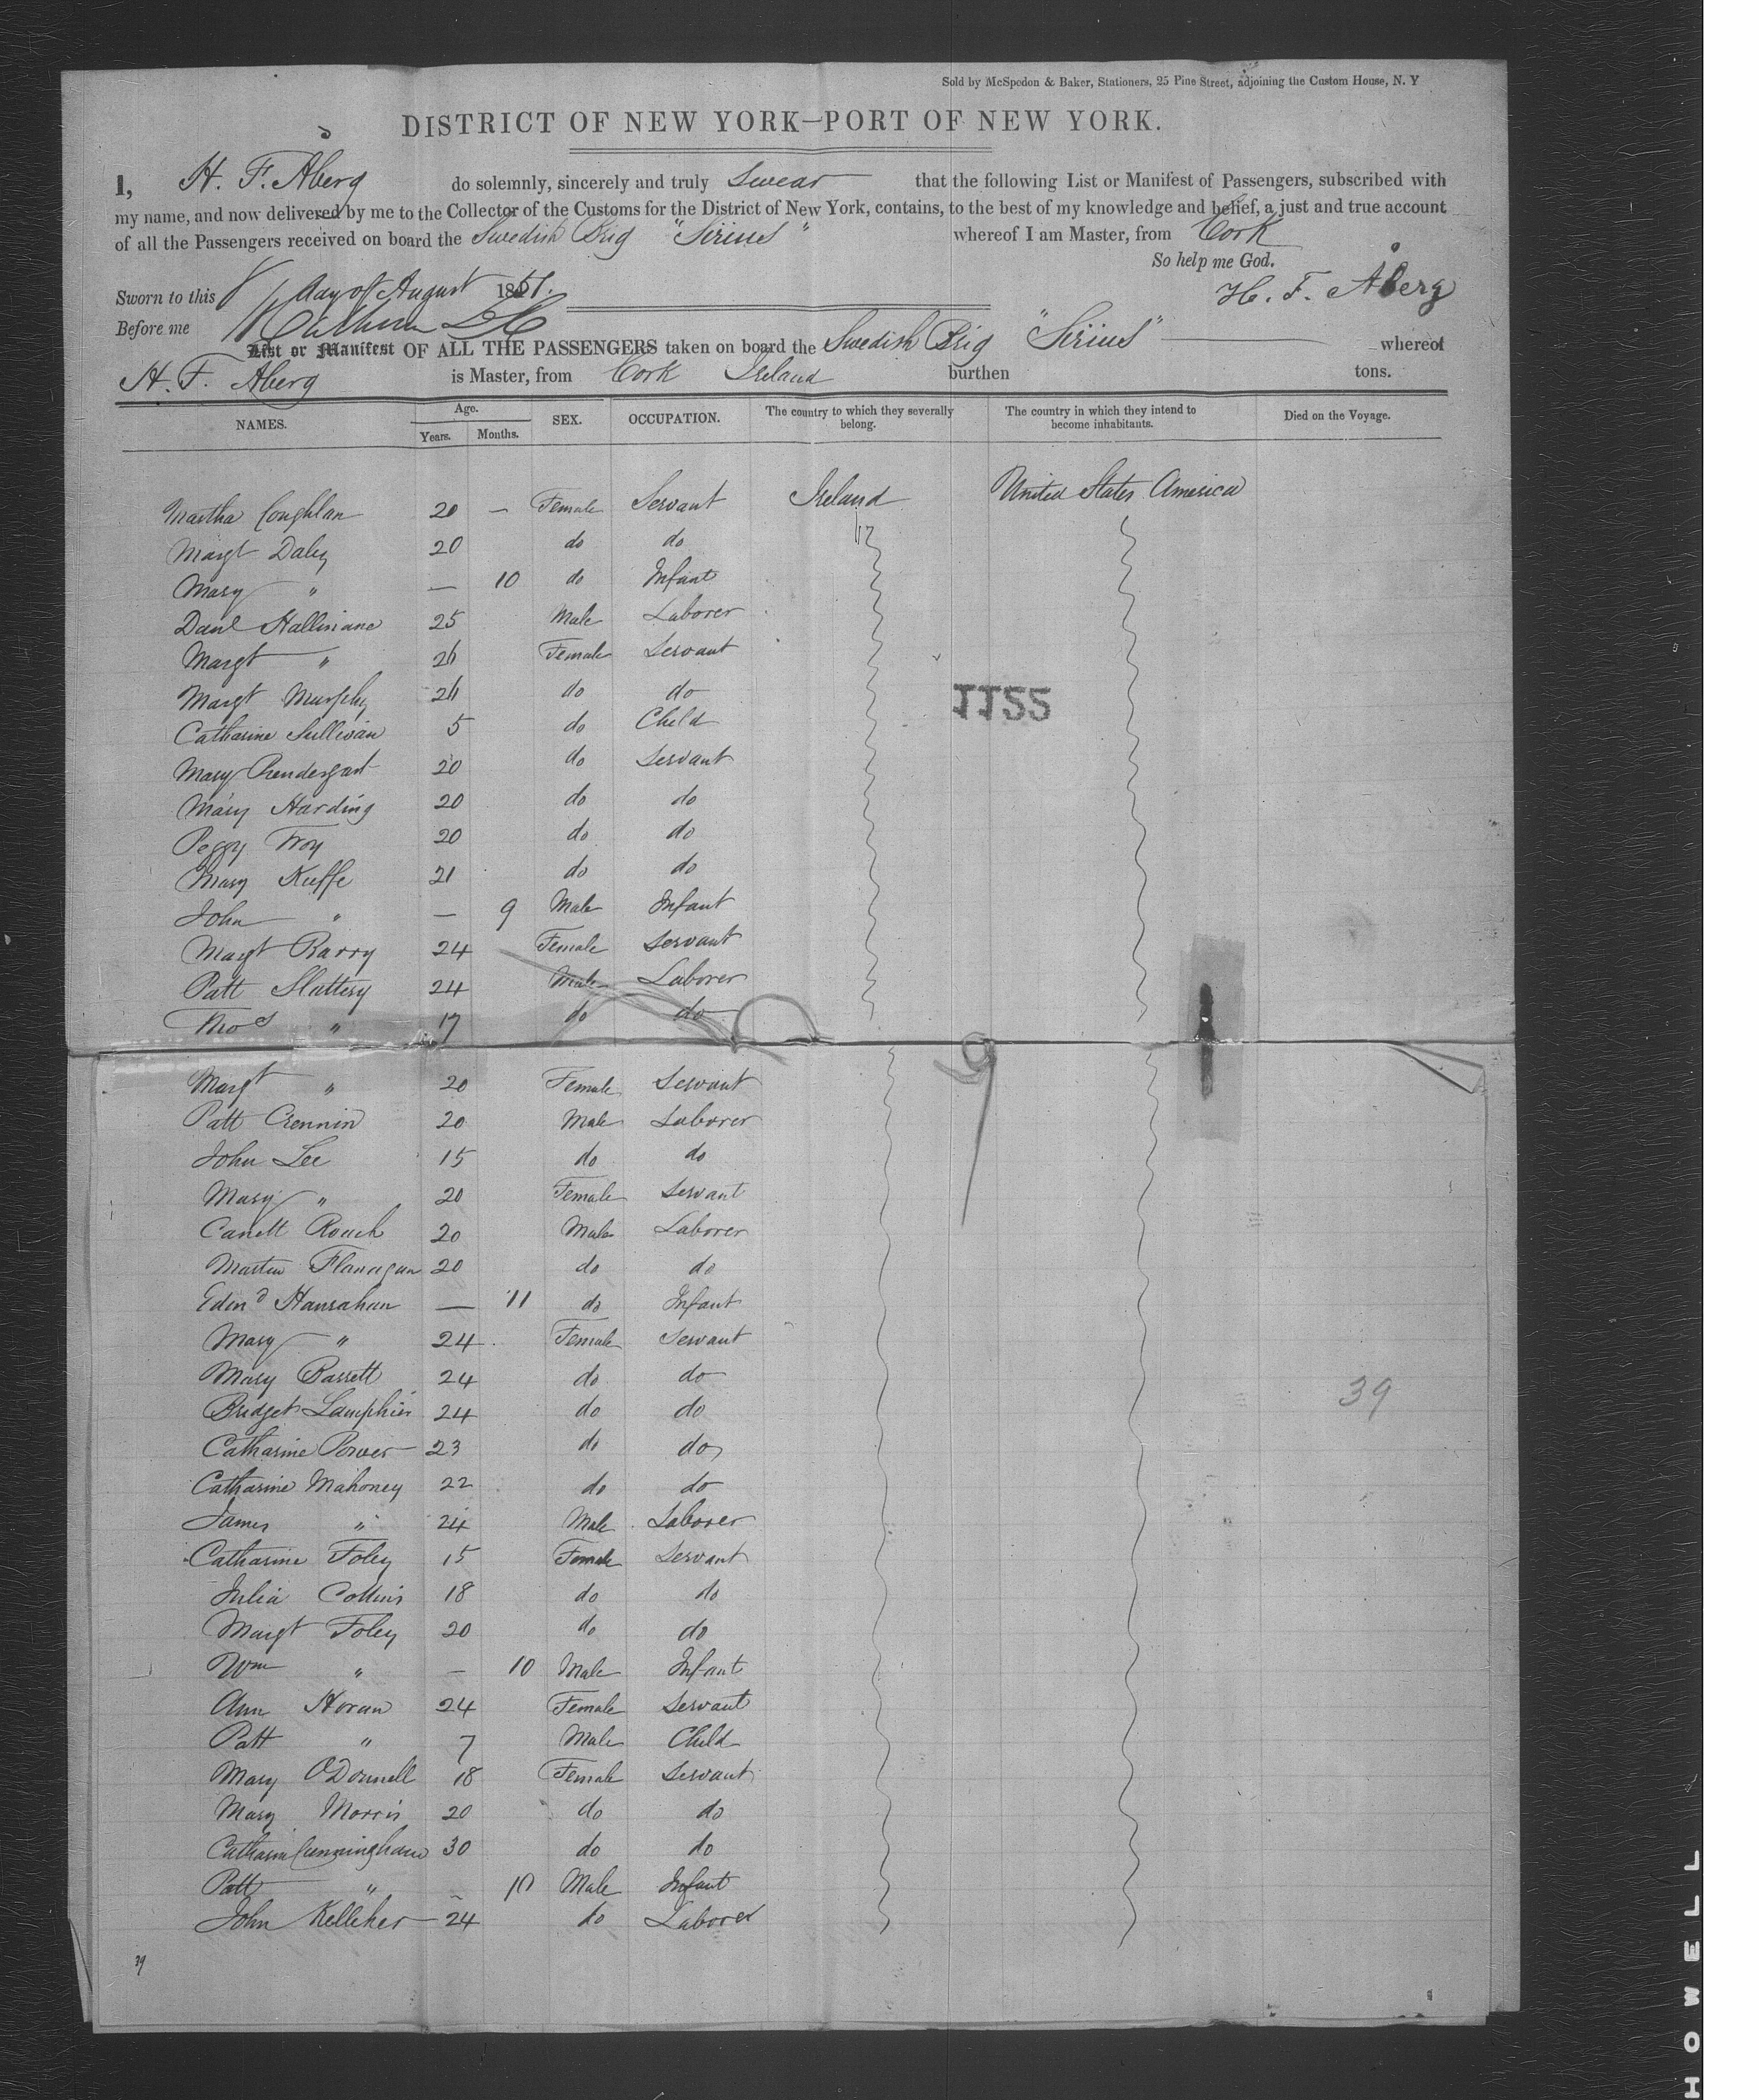 Sold by McSpedon & Baker, Stationers, 25 Pine Street, adjoining the Custom House, N. Y
DISTRICT OF NEW YORK—PORT OF NEW YORK.
I, H. F. Åberg do solemnly, sincerely and truly Swear that the following List or Manifest of Passengers, subscribed with
my name, and now delivered by me to the Collector of the Customs for the District of New York, contains, to the best of my knowledge and belief, a just and true account
of all the Passengers received on board the Swedish Brig "Sirius" whereof I am Master, from Cork
So help me God.
Sworn to this 8 day of August 1851. H. F. Åberg
Before me
List or Manifest OF ALL THE PASSENGERS taken on board the Swedish Brig "Sirius" whereof
H. F. Aberg is Master, from Cork Ireland burthen tons.
NAMES. Age. Years. Months. SEX. OCCUPATION. The country to which they severally belong. The country in which they intend to become inhabitants. Died on the Voyage.
Martha Coughlan 20 — Female Servant Ireland United States America
Margt Daley 20 do do
Mary " — 10 do Infant
Danl Hallinane 25 Male Laborer
Margt " 26 Female Servant
Margt Murphy 26 do do
1155
Catharine Sullivan 5 do Child
Mary Prendergast 20 do Servant
Mary Harding 20 do do
Peggy Troy 20 do do
Mary Keffe 21 do do
John " — 9 Male Infant
Margt Barry 24 Female Servant
Patt Slattery 24 Male Laborer
Thos " 17 do do
9
Margt " 20 Female Servant
Patt Crennin 20 Male Laborer
John Lee 15 do do
Mary " 20 Female Servant
Roach 20 Male Laborer
Martin Flanagan 20 do do
Edmd Hanrahan — 11 do Infant
Mary " 24 Female Servant
Mary Barrett 24 do do
39
Bridget Lamphier 24 do do
Catharine Power 23 do do
Catharine Mahoney 22 do do
James " 24 Male Laborer
Catharine Foley 15 Female Servant
Julia Collins 18 do do
Margt Foley 20 do do
Wm " — 10 Male Infant
Ann Horan 24 Female Servant
Patt " 7 Male Child
Mary O'Donnell 18 Female Servant
Mary Morris 20 do do
Catharin Cunningham 30 do do
Patt " — 10 Male Infant
John Kelleher 24 do Laborer
39
HOWELL